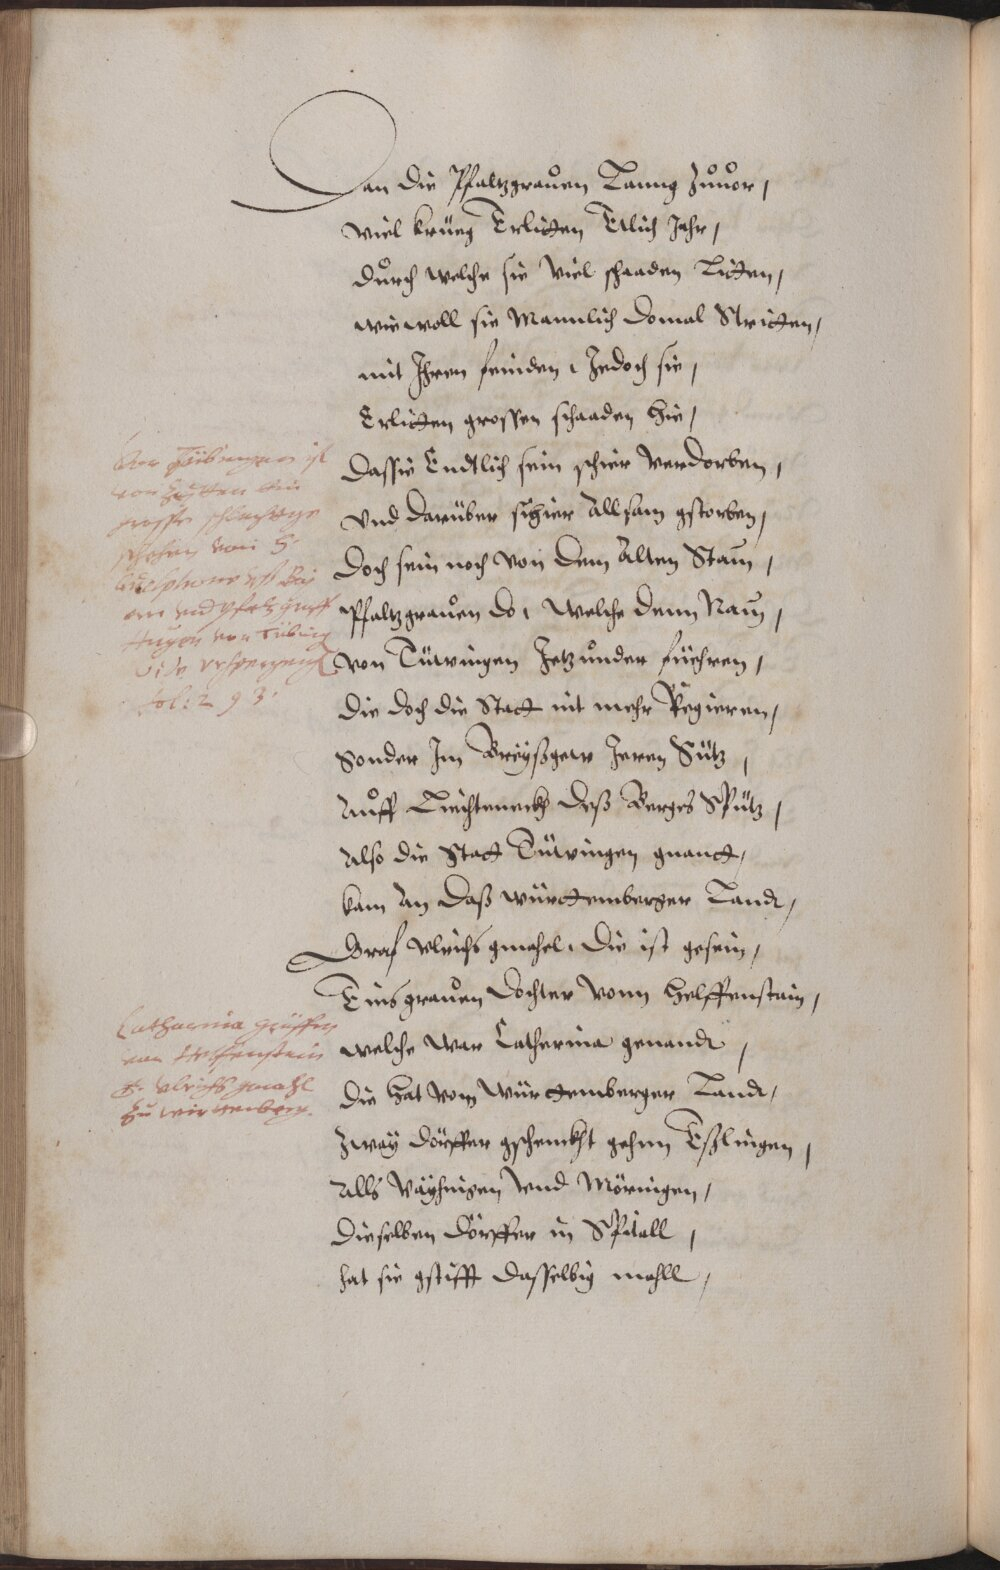 Dan die Pfaltzgrauen Lanng zuuor,
viel krüeg Erlitten Etlich Jahr,
durch welche sie viel schaaden Litten,
wie woll sie Mannlich domal Stritten,
mit Ihren feinden, Jedoch sie,
Erlitten grossen schaaden hie,
dassie Endtlich sein schier verdorben,
Vnd darüber schier Allsam gstorben,
doch sein noch von dem Alten Stam,
Pfaltzgrauen do, welche denn Nam,
von Tüwingen Jetzunder füehren,
die doch die Statt nit mehr Regieren,
Sonder Im Breÿßgew Iren Sitz,
Auff Liechteneckh deß Berges Spitz,
Also die Statt Tüwingen gnantt,
kam An daß württemberger Landt,
Graf Vlrichs gmahel, die ist gesein,
Eins grauen dochter vonn helffenstain,
welche war Catherina genandt,
die hat vom württemberger Landt,
zwaÿ dörffer gschenckht gehnn Eßlingen,
Alls Väÿhingen vnd Möringen,
dieselben dörffer in Spitall,
hat sie gstifft dasselbig mahll,
Vor Tübingen ist
von Zeitten ein
grosse schlacht
geschehen von
vnd Pfaltzgraff
Hugen von Tübing
Vide vrspergens
fol: 293.
Catharina gräffin
von Helfenstein
G. Vlrichs gmahl
zu wirtenberg.